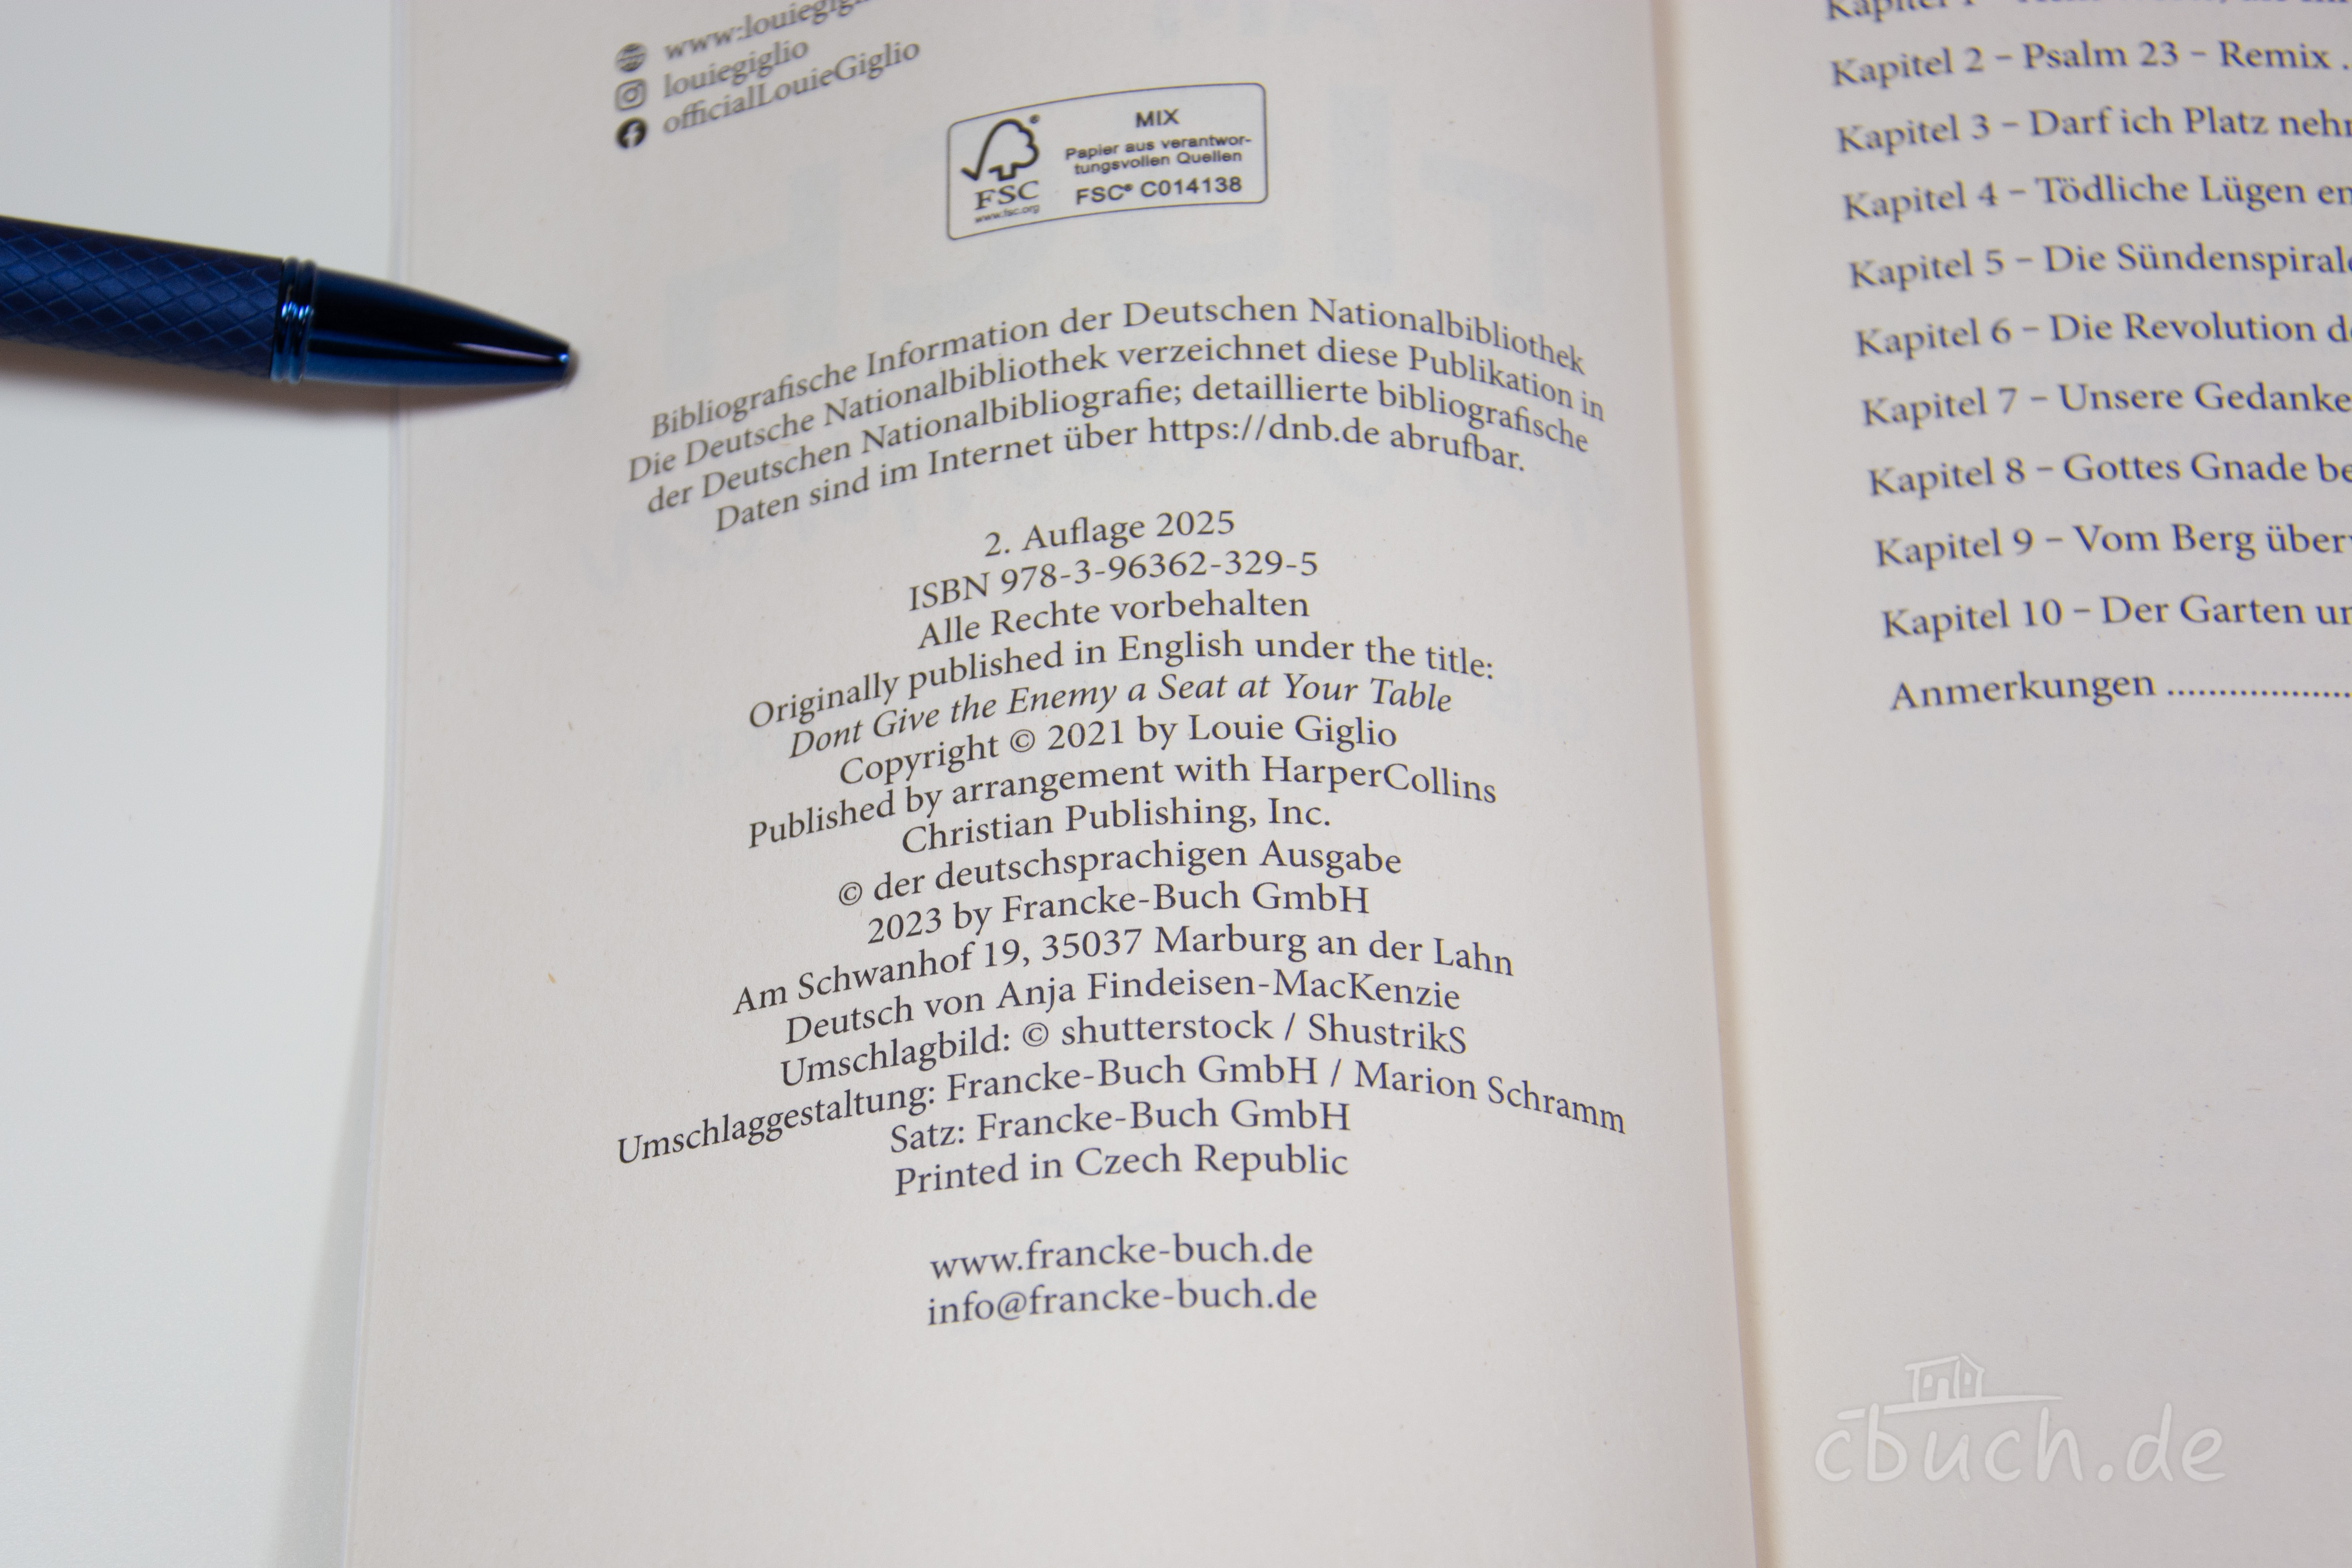 louiegiglio
officialLouieGiglio
MIX
Papier aus verantwor-
tungsvollen Quellen
FSC® C014138
FSC
www.fsc.org
Bibliografische Information der Deutschen Nationalbibliothek
Die Deutsche Nationalbibliothek verzeichnet diese Publikation in
der Deutschen Nationalbibliografie; detaillierte bibliografische
Daten sind im Internet über https://dnb.de abrufbar.
2. Auflage 2025
ISBN 978-3-96362-329-5
Alle Rechte vorbehalten
Originally published in English under the title:
Dont Give the Enemy a Seat at Your Table
Copyright © 2021 by Louie Giglio
Published by arrangement with HarperCollins
Christian Publishing, Inc.
© der deutschsprachigen Ausgabe
2023 by Francke-Buch GmbH
Am Schwanhof 19, 35037 Marburg an der Lahn
Deutsch von Anja Findeisen-MacKenzie
Umschlagbild: © shutterstock / ShustrikS
Umschlaggestaltung: Francke-Buch GmbH / Marion Schramm
Satz: Francke-Buch GmbH
Printed in Czech Republic
www.francke-buch.de
info@francke-buch.de
Kapitel 2 – Psalm 23 – Remix .
Kapitel 3 – Darf ich Platz
Kapitel 4 – Tödliche Lügen
Kapitel 5 – Die
Kapitel 6 – Die Revolution
Kapitel 7 – Unsere
Kapitel 8 – Gottes Gnade
Kapitel 9 – Vom Berg
Kapitel 10 – Der Garten
Anmerkungen ..................
cbuch.de